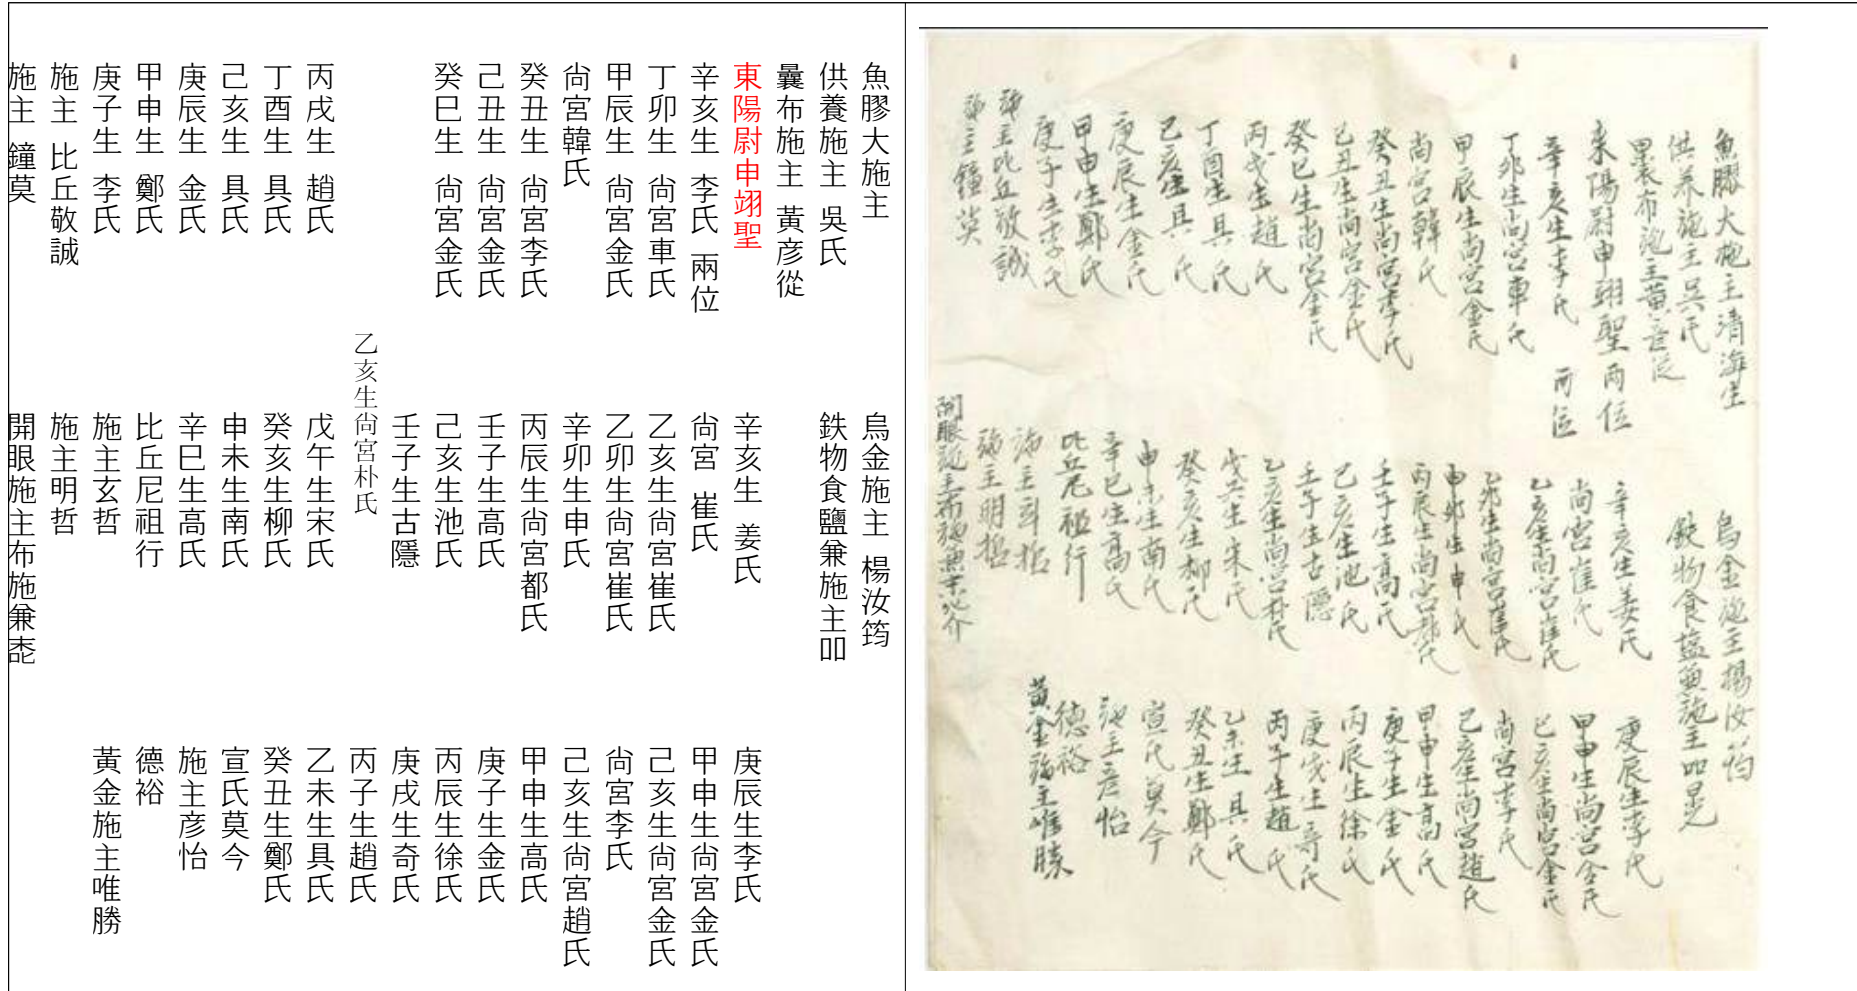 魚膠大施主
供養施主 吳氏
曩布施主 黃彦從
東陽尉申翊聖
辛亥生 李氏 兩位
丁卯生 尙宮車氏
甲辰生 尙宮金氏
尙宮韓氏
癸丑生 尙宮李氏
己丑生 尙宮金氏
癸巳生 尙宮金氏
丙戌生 趙氏
丁酉生 具氏
己亥生 具氏
庚辰生 金氏
甲申生 鄭氏
庚子生 李氏
施主 比丘敬誠
施主 鐘莫
烏金施主 楊汝筠
鉄物食鹽兼施主叩
辛亥生 姜氏
尙宮 崔氏
乙亥生尙宮崔氏
乙卯生尙宮崔氏
辛卯生申氏
丙辰生尙宮都氏
壬子生高氏
己亥生池氏
壬子生古隱
乙亥生尙宮朴氏
戊午生宋氏
癸亥生柳氏
申未生南氏
辛巳生高氏
比丘尼祖行
施主玄哲
施主明哲
開眼施主布施兼
庚辰生李氏
甲申生尙宮金氏
己亥生尙宮金氏
尙宮李氏
己亥生尙宮趙氏
甲申生高氏
庚子生金氏
丙辰生徐氏
庚戌生奇氏
丙子生趙氏
乙未生具氏
癸丑生鄭氏
宣氏莫今
施主彦怡
德裕
黃金施主唯勝
魚膠大施主清海生
供养施主吳氏
布施主黃彦從
東陽尉申翊聖兩位
辛亥生李氏 兩位
丁卯生尙宮車氏
甲辰生尙宮金氏
尙宮韓氏
癸丑生尙宮李氏
己丑生尙宮金氏
癸巳生尙宮金氏
丙戌生趙氏
丁酉生具氏
己亥生具氏
庚辰生金氏
甲申生鄭氏
庚子生李氏
施主比丘敬誠
施主鐘莫
烏金施主楊汝筠
鉄物食塩兼施主
辛亥生姜氏
尙宮崔氏
乙亥生尙宮崔氏
乙卯生尙宮崔氏
辛卯生申氏
丙辰生尙宮都氏
壬子生高氏
己亥生池氏
壬子生古隱
乙亥生尙宮朴氏
戊午生宋氏
癸亥生柳氏
申未生南氏
辛巳生高氏
比丘尼祖行
施主
施主明哲
開眼施主布施兼
庚辰生李氏
甲申生尙宮金氏
己亥生尙宮金氏
尙宮李氏
己亥生尙宮趙氏
甲申生高氏
庚子生金氏
丙辰生徐氏
庚戌生奇氏
丙子生趙氏
乙未生具氏
癸丑生鄭氏
宣氏莫今
施主彦怡
德裕
黃金施主唯勝